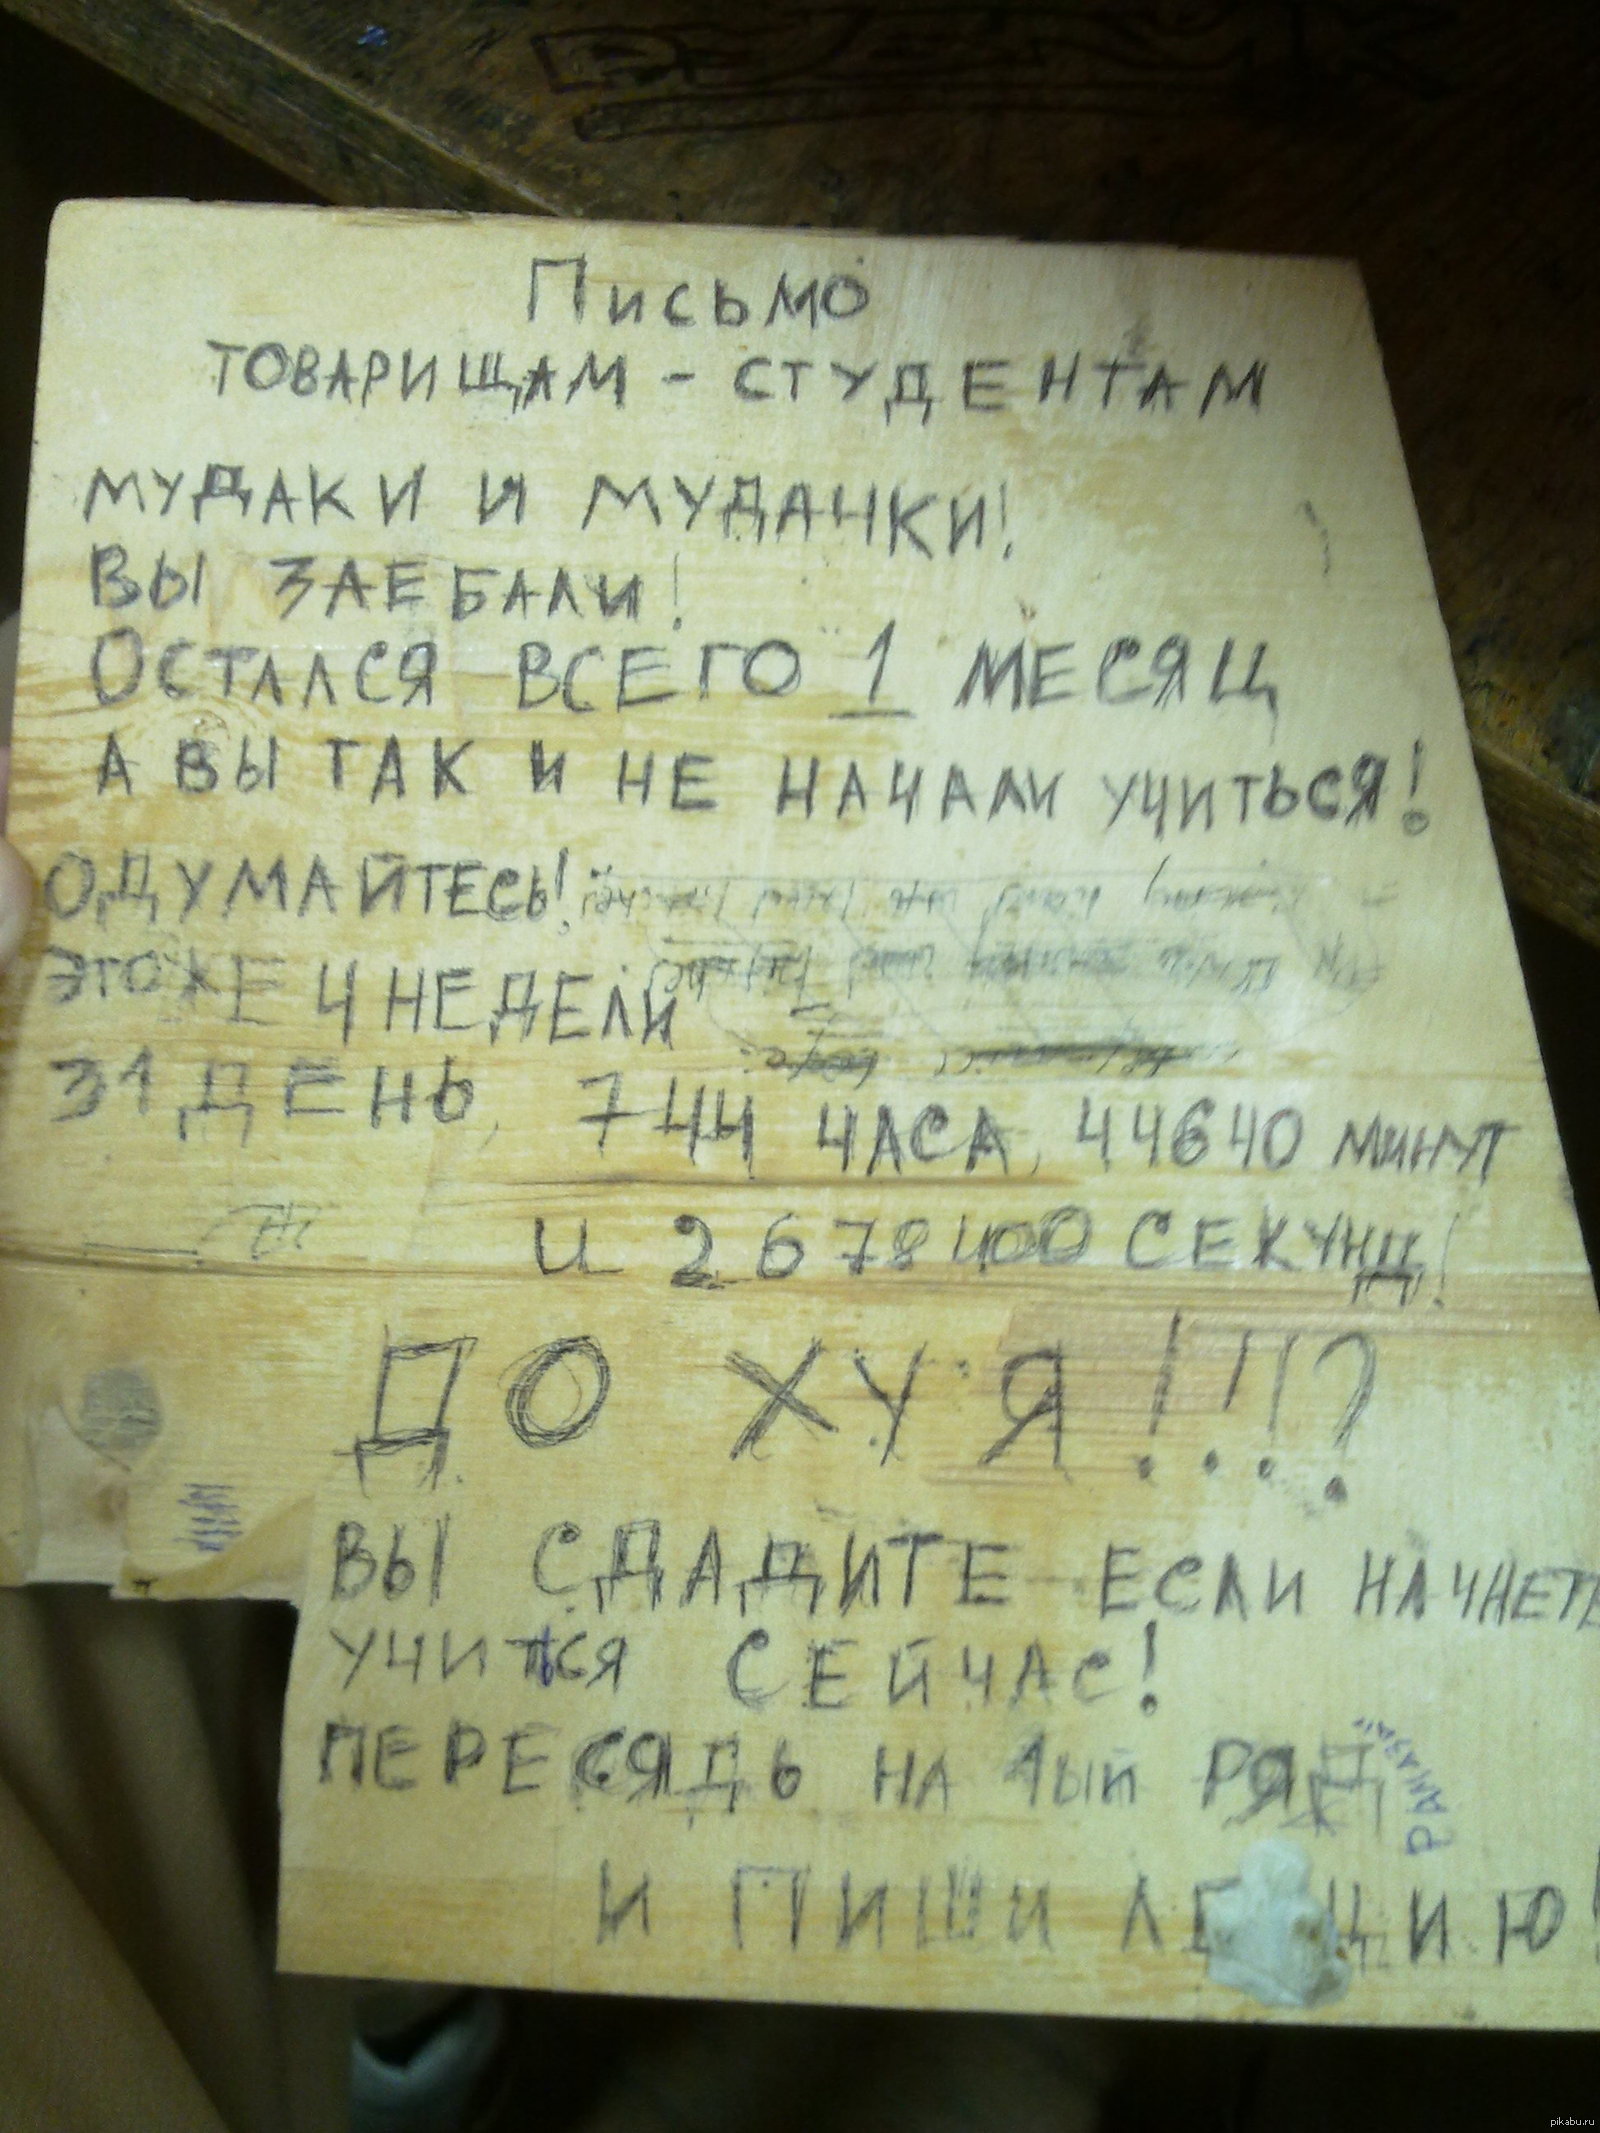 Письмо
ТОВАРИЩАМ - СТУДЕНТАМ
МУДАКИ И МУДАЧКИ!
ВЫ ЗАЕБАЛИ!
ОСТАЛСЯ ВСЕГО 1 МЕСЯЦ
А ВЫ ТАК И НЕ НАЧАЛИ УЧИТЬСЯ!
ОДУМАЙТЕСЬ!
ЭТО ЖЕ 4 НЕДЕЛИ
31 ДЕНЬ, 744 ЧАСА, 44640 МИНУТ
И 2678400 СЕКУНД!
ДО ХУЯ!!!?
ВЫ СДАДИТЕ ЕСЛИ НАЧНЕТЕ
УЧИТЬСЯ СЕЙЧАС!
ПЕРЕСЯДЬ НА 1ЫЙ РЯД
И ПИШИ ЛЕКЦИЮ!
pikabu.ru